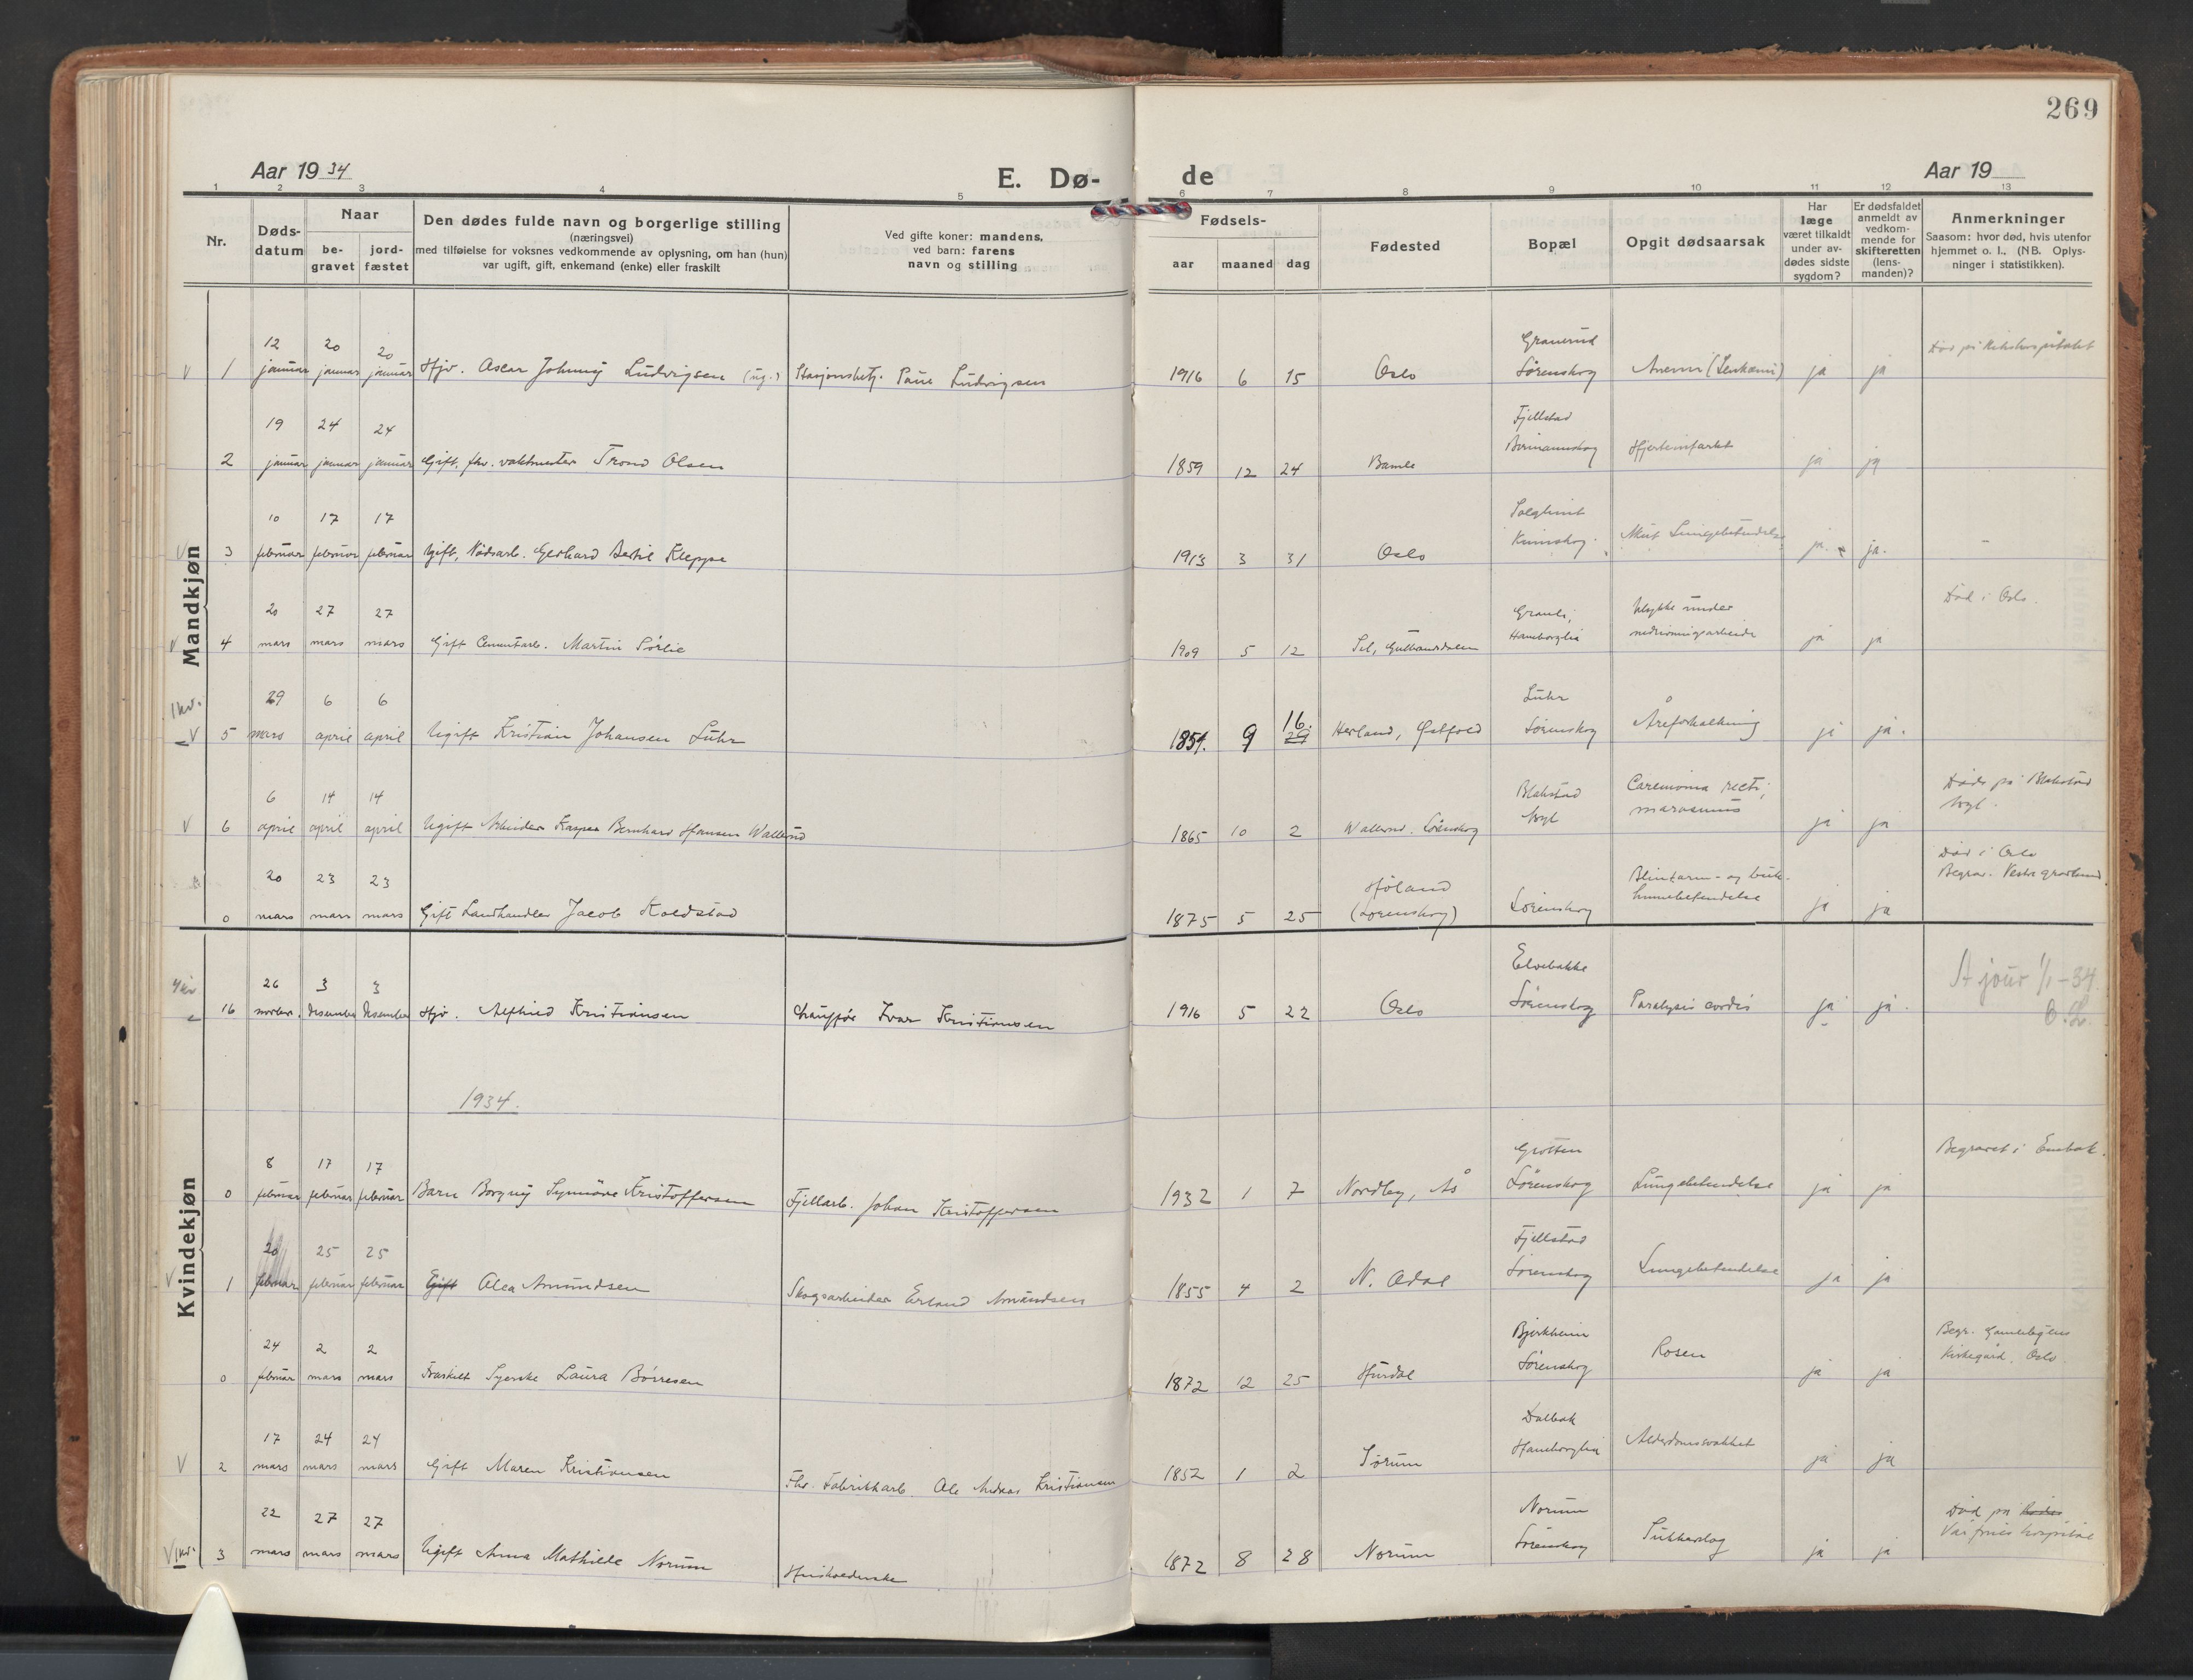 269
Aar 1934
E. Dø-
de
Aar 19
1 2 3 4 5 6 7 8 9 10 11 12 13
Nr.
Døds-
datum
Naar
be-
gravet
jord-
fæstet
Den dødes fulde navn og borgerlige stilling
(næringsvei)
med tilføielse for voksnes vedkommende av oplysning, om han (hun)
var ugift, gift, enkemand (enke) eller fraskilt
Ved gifte koner: mandens,
ved barn: farens
navn og stilling
Fødsels-
aar maaned dag
Fødested
Bopæl
Opgit dødsaarsak
Har
læge
været tilkaldt
under av-
dødes sidste
sygdom?
Er dødsfaldet
anmeldt av
vedkom-
mende for
skifteretten
(lens-
manden)?
Anmerkninger
Saasom: hvor død, hvis utenfor
hjemmet o. l., (NB. Oplys-
ninger i statistikken).
Mandkjøn
12 20 20 Granerud Død på Rikshospitalet
V 1 januar januar januar Hjv. Oscar Johnny Ludvigsen (ug.) Stasjonsbetj. Paul Ludvigsen 1916 6 15 Oslo Lørenskog Anemi (Leukemi) ja ja
19 24 24 Fjellstad
2 januar januar januar Gift, fhv. vaktmester Trond Olsen 1859 12 24 Bamle Hjerteinfarkt ja ja
10 17 17 Solglimt
V 3 februar februar februar Ugift, Nødsarb. Gerhard Bertil Kleppe 1913 3 31 Oslo Akut Lungebetendelse ja. ja. -
20 27 27 Ulykke under Død i Oslo.
V 4 mars mars mars Gift Cementarb. Martin Sørlie 1909 5 12 Sel, Gulbrandsdalen Hamborglia nedrivningsarbeide ja ja
1kv. 29 6 6 16. Luhr
V 5 mars april april Ugift Kristian Johansen Luhr 1854. 9 29 Herland, Østfold Lørenskog Åreforkalkning ja ja.
6 14 14 Blakstad Carcinoma recti, Døde på Blakstad
V 6 april april april Ugift Arbeider Kasper Bernhard Hansen Wallerud 1865 10 2 Wallerud. Lørenskog Asyl marasmus ja ja Asyl.
20 23 23 Høland Blindtarm- og buk- Død i Oslo
Begrav. Vestre gravlund.
0 mars mars mars Gift Landhandler Jacob Koldstad 1875 5 25 (Lørenskog) Lørenskog hinnebetendelse ja ja
Kvindekjøn
26 3 3 Elvebakke A jour 1/1-34.
16 november. Desember Desember Hjv. Alfhild Kristiansen Chauffør Ivar Kristiansen 1916 5 22 Oslo Lørenskog Paralysis cordis ja ja.
1934.
8 17 17 Grotten Begravet i Enebak.
0 februar februar februar Barn Borgny Synnøve Kristoffersen Fjellarb. Johan Kristoffersen 1932 1 7 Nordby, Ås Lørenskog Lungebetendelse ja ja
20 25 25 Fjellstad
V 1 februar februar februar Gift Olea Amundsen Skogsarbeider Erland Amundsen 1855 4 2 N. Odal Lørenskog Lungebetendelse ja ja
24 2 2 Bjerkheim Begr. Gamlebyens
Kirkegård, Oslo.
0 februar mars mars Fraskilt Syerske Laura Børresen 1872 12 25 Hurdal Lørenskog Rosen ja ja
17 24 24 Dalbak
V 2 mars mars mars Gift Maren Kristiansen Fhv. Fabrikkarb. Ole Andreas Kristiansen 1852 1 2 Sørum Hamborglia Alderdomssvakhet ja ja
22 27 27 Norum Død på
Vår frues hospital
V 1kv. 3 mars mars mars Ugift Anna Mathilde Norum Husholderske 1872 8 28 Norum Lørenskog Sukkerslag ja ja